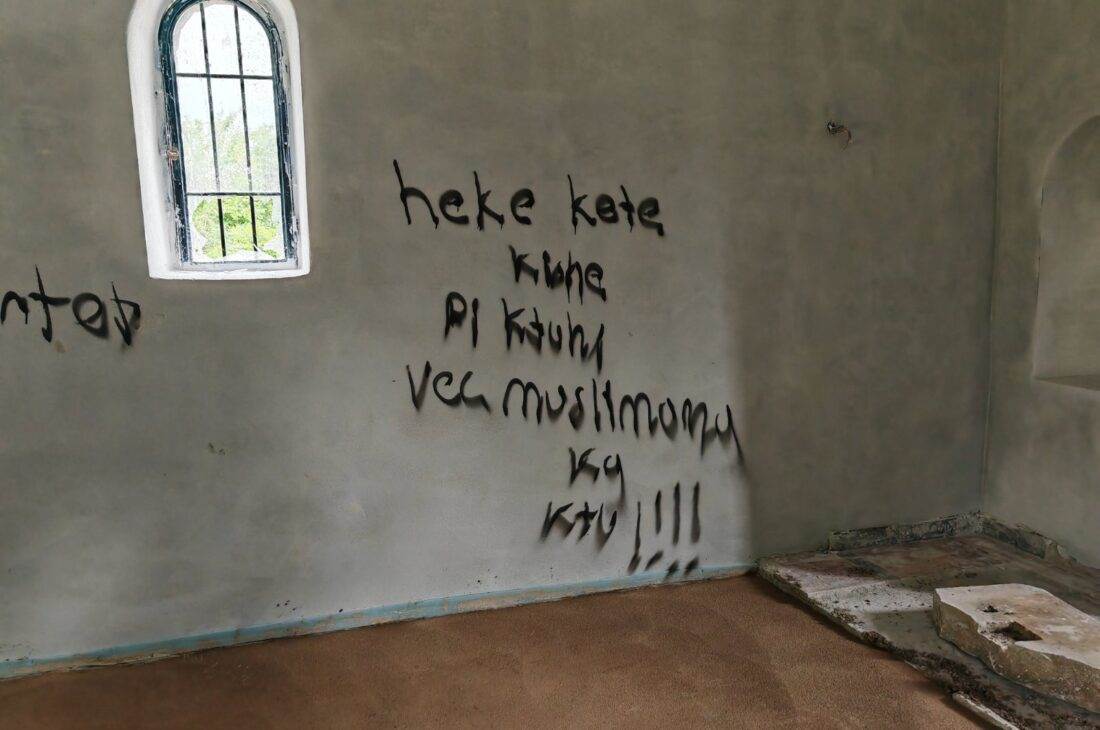 heke kete
kishe
Pi Ktuhi
Vec muslimana
Ka
Ktu !!!!